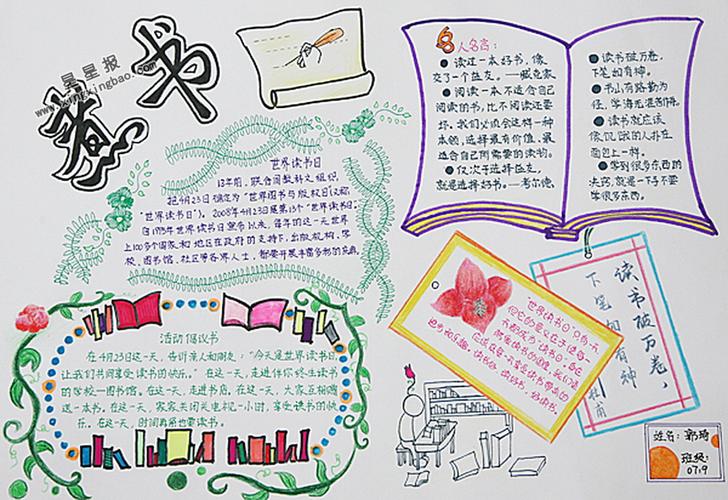 書
星星报
www.xingkingbao.com
世界读书日
13年前,联合国教科文组织
把4月23日确定为“世界图书与版权日(又称
“世界读书日”)。2008年4月23日是第13个“世界读书日”。
自1995年世界读书日宣布以来,每年的这一天世界
上100多个国家和地区在政府的支持下,出版机构、学
校、图书馆、社区等各界人士,都要开展丰富多彩的庆典
名人名言:
读过一本好书,像
交了一个益友。——臧克家
阅读一本不适合自己
阅读的书,比不阅读还要
坏。我们必须会这样一种
本领,选择最有价值、最
适合自己所需要的读物。
仅次于选择益友,
就是选择好书。——考尔德
读书破万卷,
下笔如有神。
书山有路勤为
径,学海无涯
读书就应该
像饥饿的人扑在
面包上一样。
学到很多东西的
诀窍,就是一下子不要
学很多东西。
活动倡议书
在4月23日这一天,告诉亲人和朋友:“今天是世界读书日
让我们共同享受读书的快乐。”在这一天,走进伴你终生读书
的学校——图书馆。在这一天,走进书店。在这一天,大家互相赠
送一本书。在这一天,家家关闭电视机一小时,享受读书的快
乐。在这一天,
“世界读书日”只有一天
读书破万卷,
下笔如有神
杜甫
姓名:郭琦
班级:
07.9